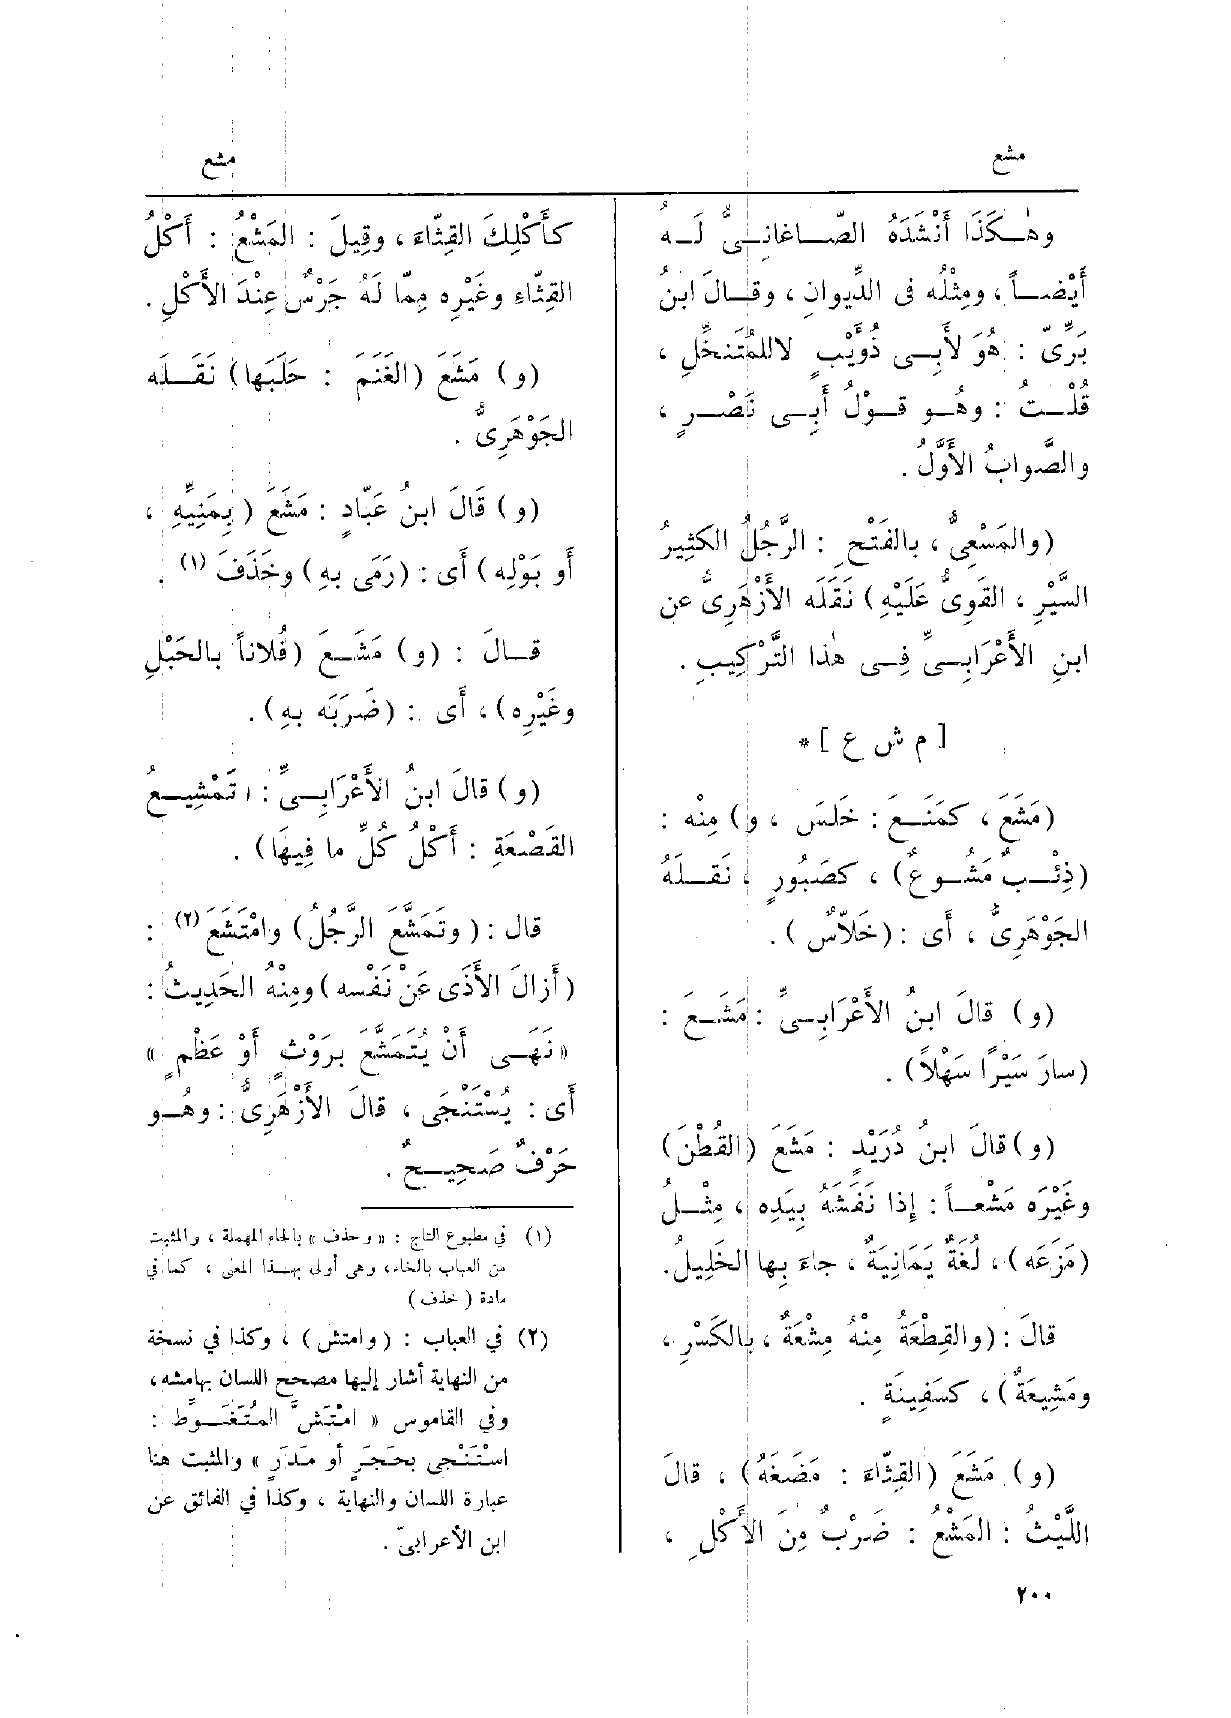 مشع
مشع
وهٰكَذَا أَنْشَدَهُ الصّاغانِىُّ لَهُ
أَيْضاً، ومِثْلُه فى الدِّيوانِ، وقالَ ابنُ
بَرِّىّ : هُوَ لأَبِى ذُؤَيْبٍ لاللمُتَنخِّلِ،
قُلْتُ : وهُو قَوْلُ أَبِى نَصْرٍ،
والصَّوابُ الأَوَّلُ.
(والمَسْعِىُّ، بالفَتْحِ : الرَّجُلُ الكَثِيرُ
السَّيْرِ، القَوِىُّ عَلَيْهِ) نَقَلَه الأَزْهَرِىُّ عن
ابنِ الأَعْرَابِىِّ فِى هٰذا التَّرْكِيبِ.
[ م ش ع ] *
(مَشَعَ، كمَنَعَ : خَلَسَ، و) مِنْه :
(ذِئْبٌ مَشُوعٌ)، كصَبُورٍ، نَقَلَهُ
الجَوْهَرِىُّ، أى : (خَلاّسٌ).
(و) قالَ ابنُ الأَعْرَابِىِّ : مَشَعَ :
(سارَ سَيْرًا سَهْلاً).
(و) قالَ ابنُ دُرَيْدٍ : مَشَعَ (القُطْنَ)
وغَيْرَه مَشْعاً : إِذا نَفَشَهُ بِيَدِه، مِثْلُ
(مَزَعَه)، لُغَةٌ يَمَانِيَةٌ، جاءَ بِها الخَلِيلُ.
قالَ : (والقِطْعَةُ مِنْهُ مِشْعَةٌ، بالكَسْرِ،
ومَشِيعَةٌ)، كسَفِينَةٍ.
(و) مَشَعَ (القِثّاءَ : مَضَغَهُ)، قالَ
اللَّيْثُ : المَشْعُ : ضَرْبٌ مِنَ الأَكْلِ،
كأَكْلِكَ القِثّاءَ، وقِيلَ : المَشْعُ : أَكْلُ
القِثّاءِ وغَيْرِه مِمّا لَهُ جَرْسٌ عِنْدَ الأَكْلِ.
(و) مَشَعَ (الغَنَمَ : حَلَبَها) نَقَلَه
الجَوْهَرِىُّ.
(و) قَالَ ابنُ عَبّادٍ : مَشَعَ (بِمَنِيِّهِ،
أو بَوْلِه) أى : (رَمَى بهِ) وخَذَفَ (١).
قالَ : (و) مَشَعَ (فُلاناً بالحَبْلِ
وغَيْرِه)، أى : (ضَرَبَه بهِ).
(و) قالَ ابنُ الأَعْرَابِىِّ : (تَمْشِيعُ
القَصْعَةِ : أَكْلُ كُلِّ ما فِيهَا).
قال : (وتَمَشَّعَ الرَّجُلُ) وامْتَشَعَ (٢) :
(أَزالَ الأَذَى عَنْ نَفْسِه) ومِنْهُ الحَدِيثُ :
«نَهَى أَنْ يُتَمَشَّعَ بِرَوْثٍ أَوْ عَظْمٍ»
أى : يُسْتَنْجَى، قالَ الأَزْهَرِىُّ : وهُو
حَرْفٌ صَحِيحٌ.
(١) في مطبوع التاج : «وحذف» بالحاء المهملة، والمثبت
من العباب بالخاء، وهى أولى بهذا المعنى، كما في
مادة (خذف)
(٢) في العباب : (وامتش)، وكذا في نسخة
من النهاية أشار إليها مصحح اللسان بهامشه،
وفي القاموس «امْتَشَّ المُتَغَوِّطُ :
اسْتَنْجى بحَجَرٍ أو مَدَرٍ» والمثبت هنا
عبارة اللسان والنهاية، وكذا في الفائق عن
ابن الأعرابىّ.
٢٠٠